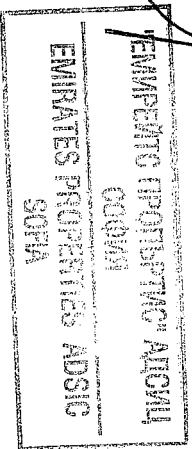 "ЕМИРЕЙТС ПРОПЪРТИС" АДСИЦ
СОФИЯ
EMIRATES PROPERTIES ADSIC
SOFIA